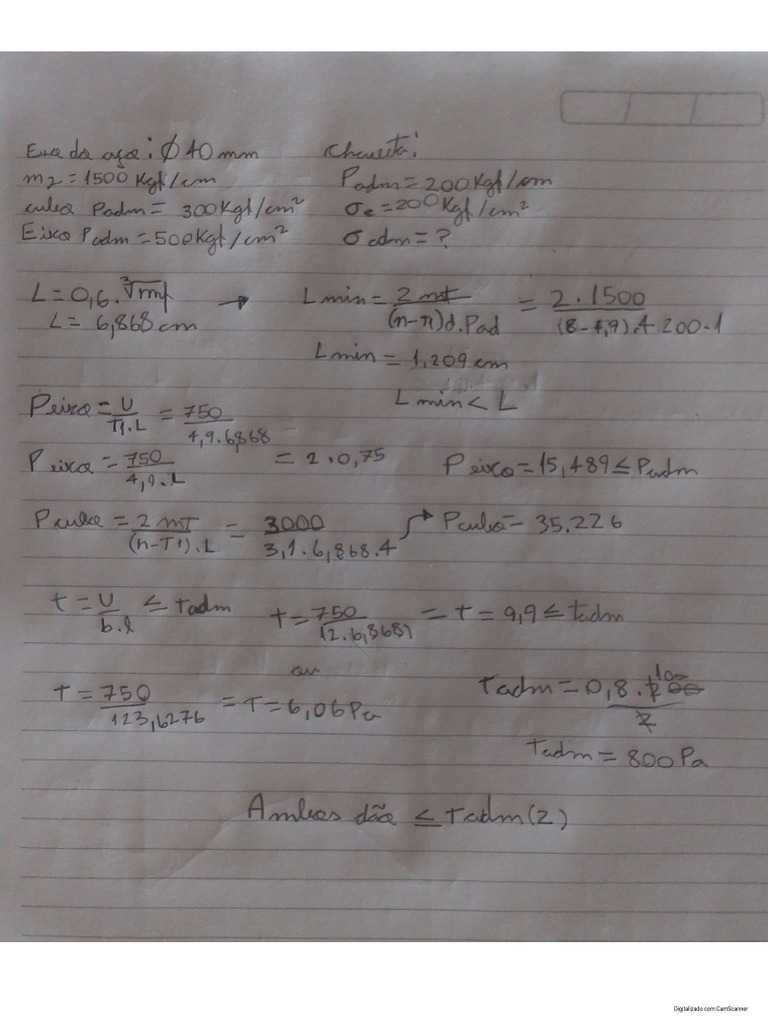 Eixo do aço: Ø 40 mm
m2 = 1500 Kgf/cm
cubo Padm = 300 Kgf/cm²
Eixo Padm = 500 Kgf/cm²
Chaveta:
Padm = 200 Kgf/cm
σe = 200 Kgf/cm²
σadm = ?
L = 0,6 . ³√mt →
L = 6,868 cm
L min = 2 mt / (h-t1) d. Pad = 2.1500 / (8-4,9).4 200-1
L min = 1,209 cm
L min < L
Peixo = U / T1.L = 750 / 4,9.6,868
Peixo = 750 / 4,9.L = 2.0,75
Peixo = 15,489 ≤ Padm
Pcubo = 2 mt / (h-T1).L = 3000 / 3,1.6,868.4 → Pcubo = 35.226
t = U / b.l ≤ tadm
t = 750 / 12.6,868 = t = 9,9 ≤ tadm
ou
t = 750 / 123,6276 = T = 6,06 Pa
tadm = 0,8 . 100 / 2
tadm = 800 Pa
Ambos dão ≤ tadm (2)
Digitalizado com CamScanner